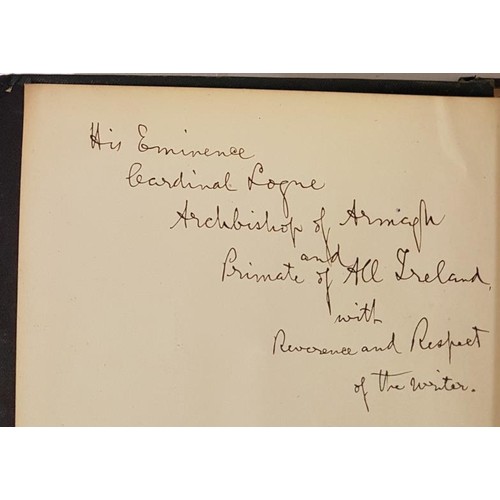 His Eminence
Cardinal Logue
Archbishop of Armagh
and
Primate of All Ireland,
with
Reverence and Respect
of the writer.